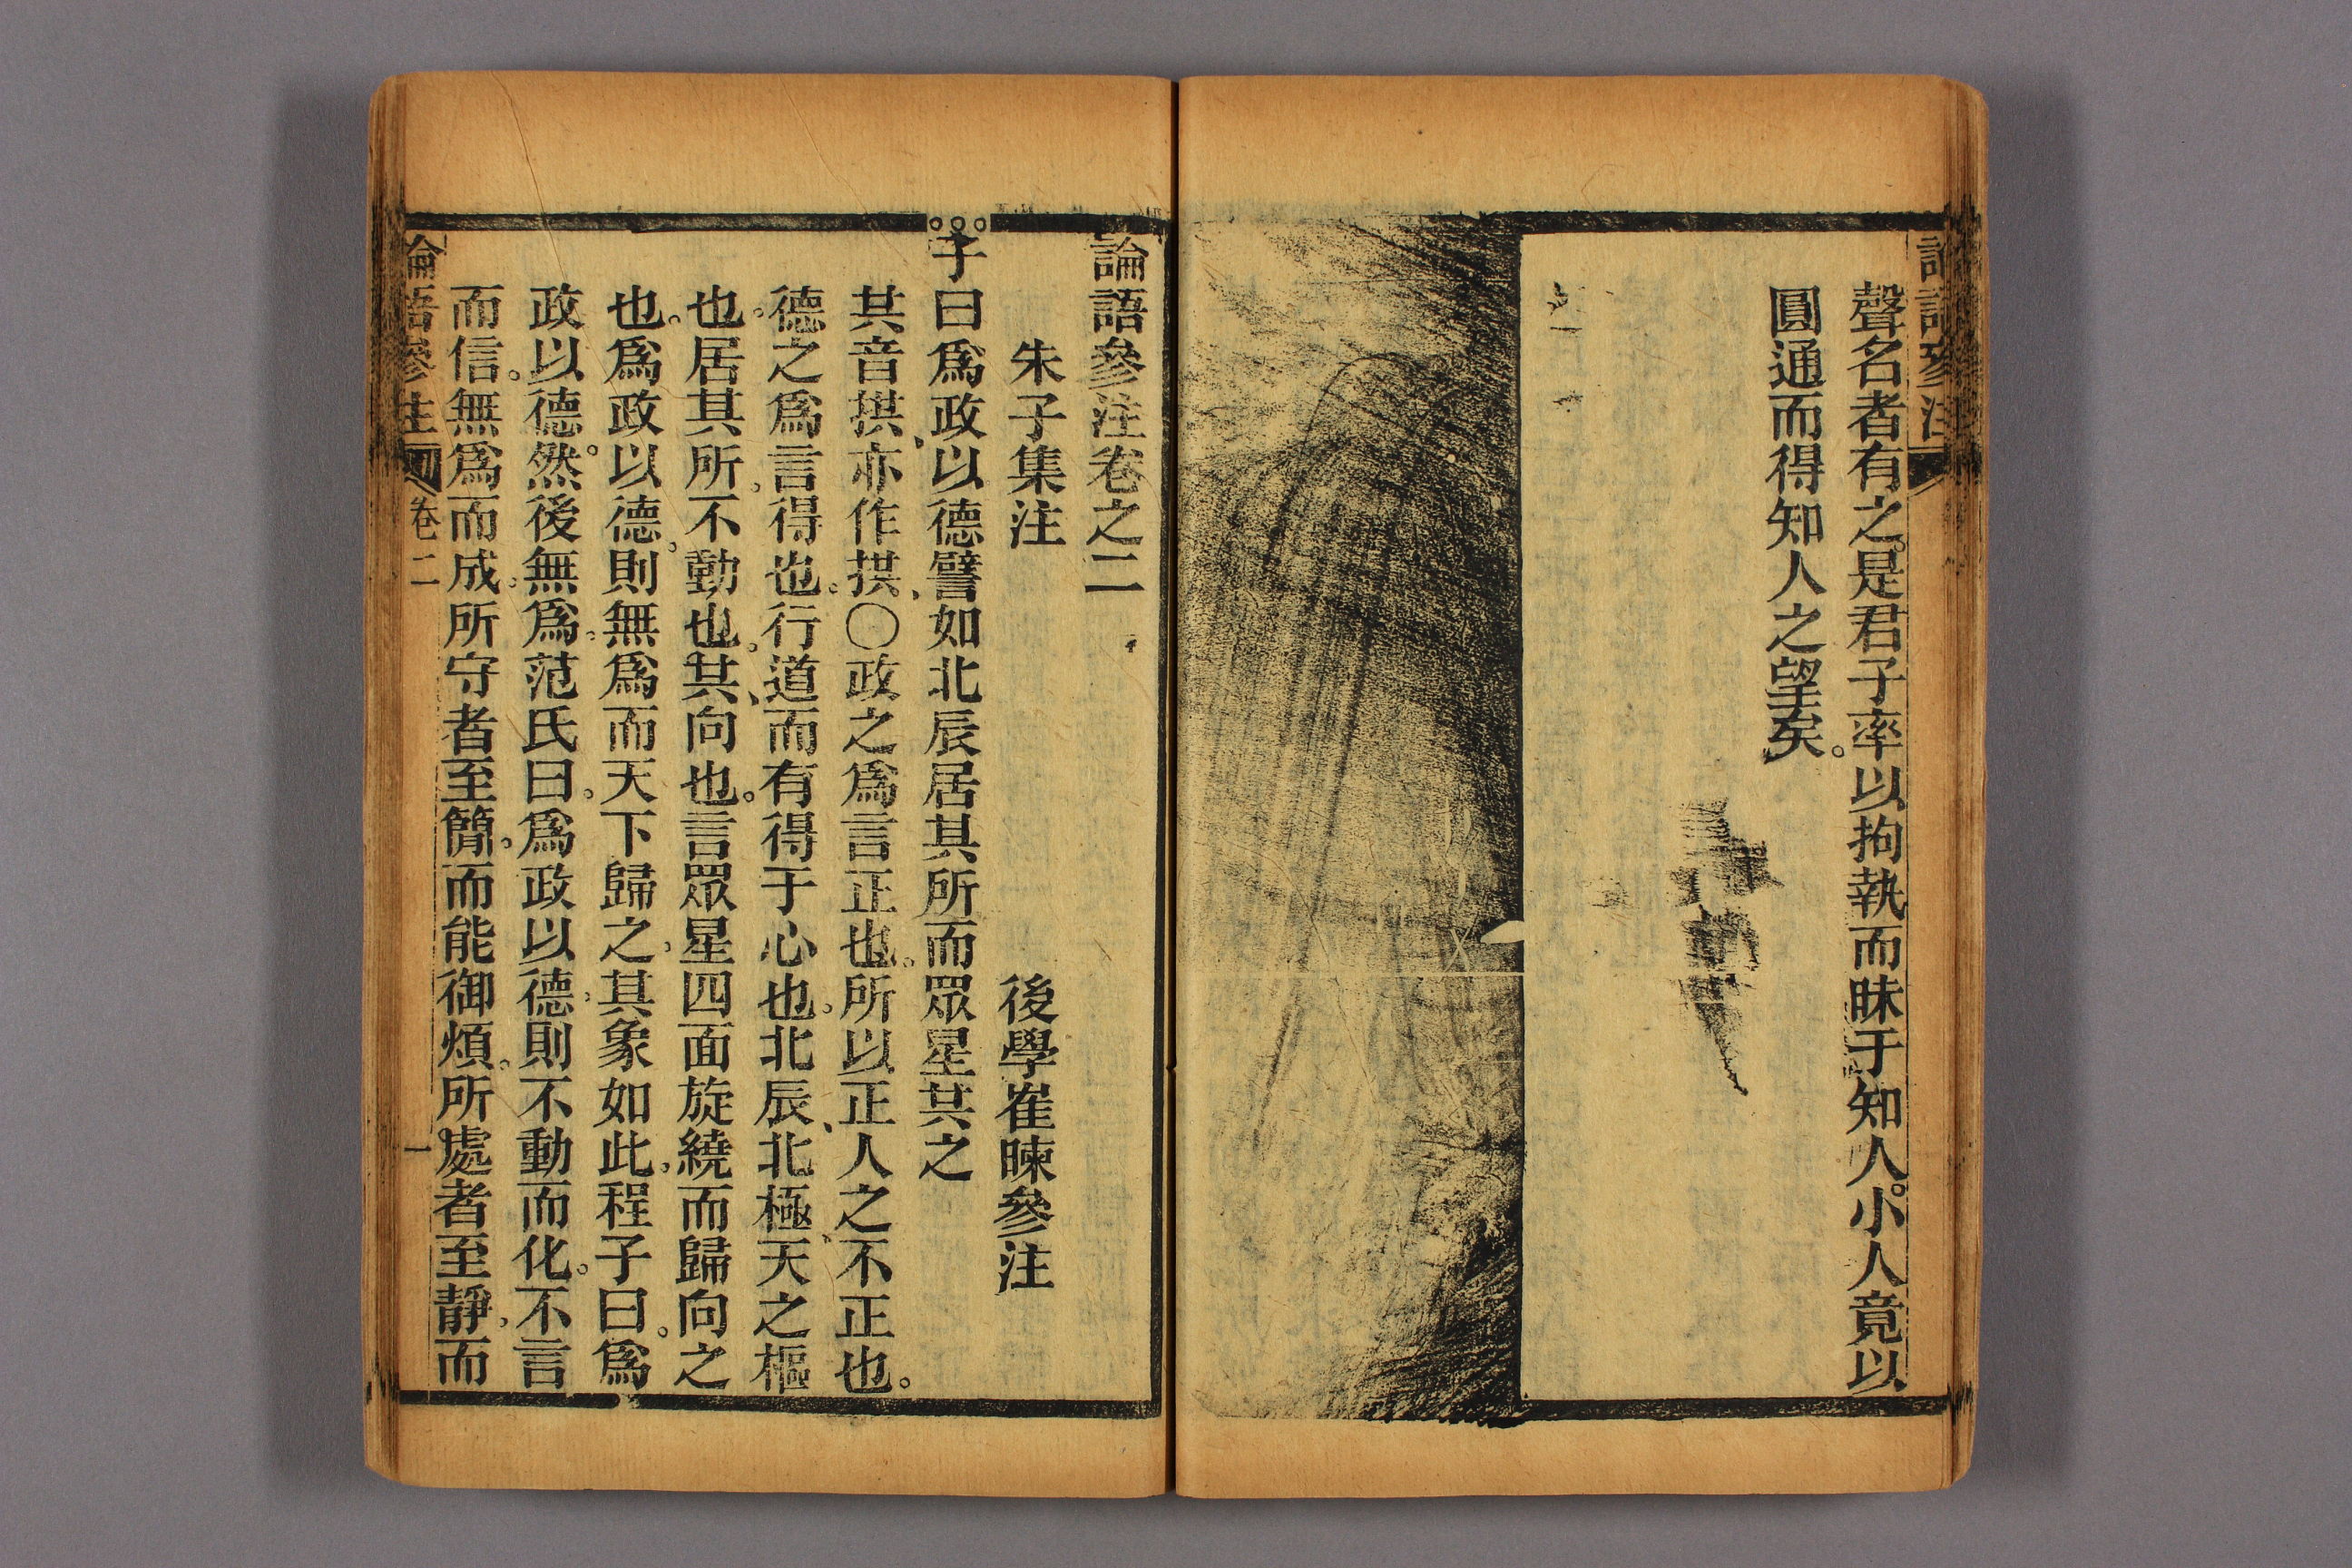 論語參注
聲名者有之。是君子率以拘執而昧于知人。小人竟以
圓通而得知人之望矣。
論語參注卷之二
朱子集注　後學崔暕參注
子曰爲政以德譬如北辰居其所而眾星共之
共音拱、亦作拱、○政之爲言正也。所以正人之不正也。
德之爲言得也。行道而有得于心也。北辰、北極、天之樞
也。居其所。不動也。共、向也。言眾星四面旋繞而歸向之
也。爲政以德。則無爲而天下歸之。其象如此。程子曰。爲
政以德。然後無爲。范氏曰。爲政以德。則不動而化。不言
而信。無爲而成。所守者至簡。而能御煩。所處者至靜。而
論語參注 卷二 一